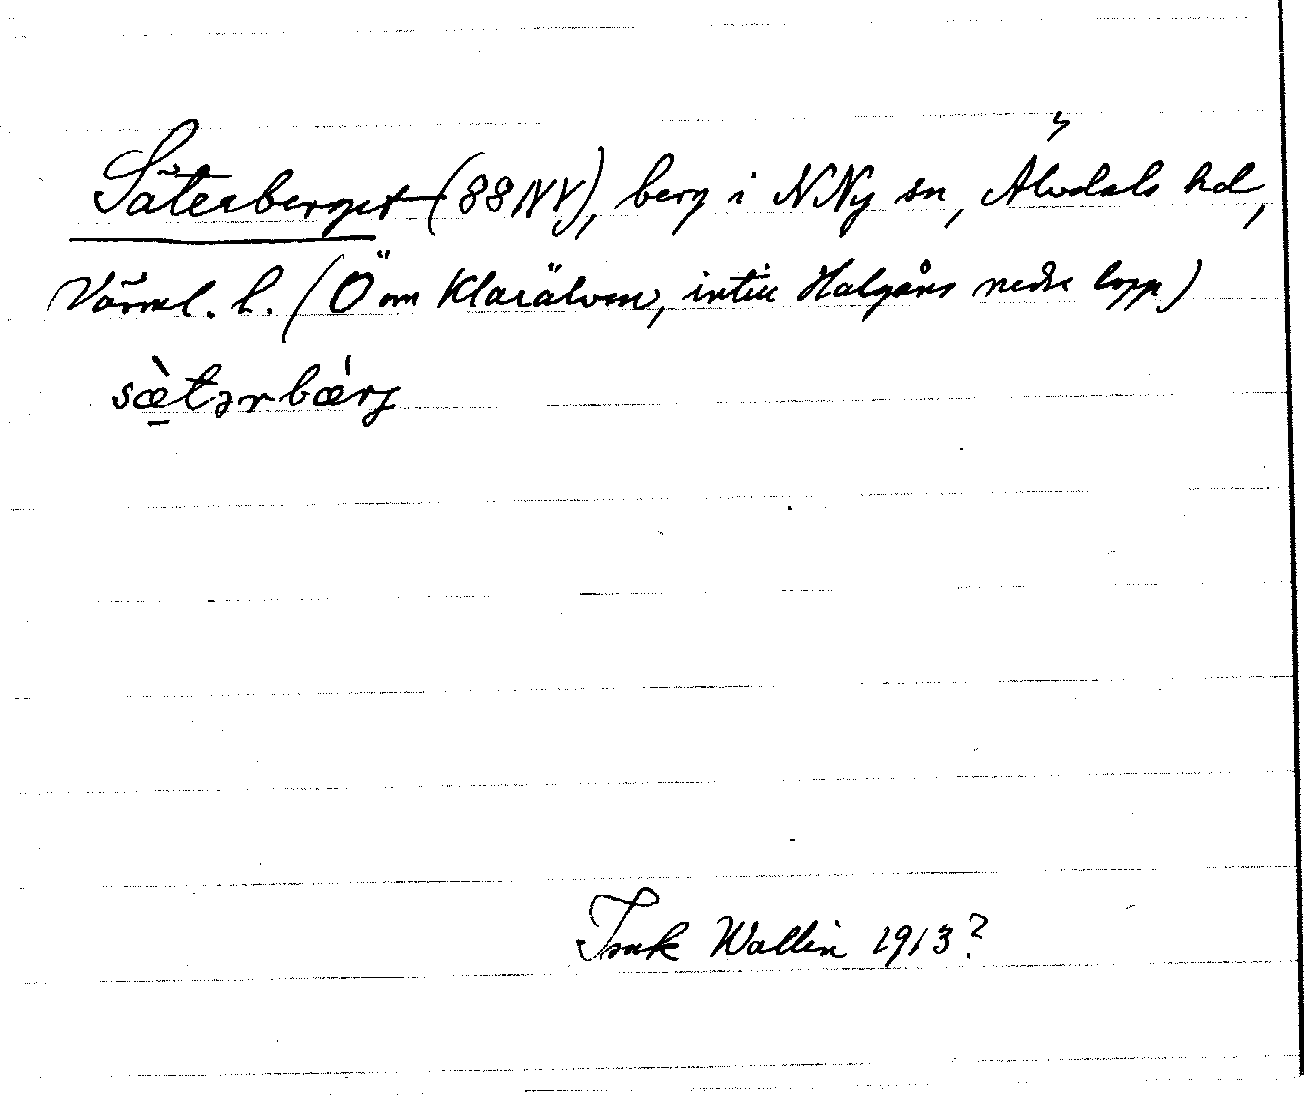 Säterberget (88NV), berg i NNy sn, Älvdals hd,
Värml. l. (Ö om Klarälven, intill Halgåns nedre lopp)
sæ̱̀tərbǽrj
Isak Wallin 1913?